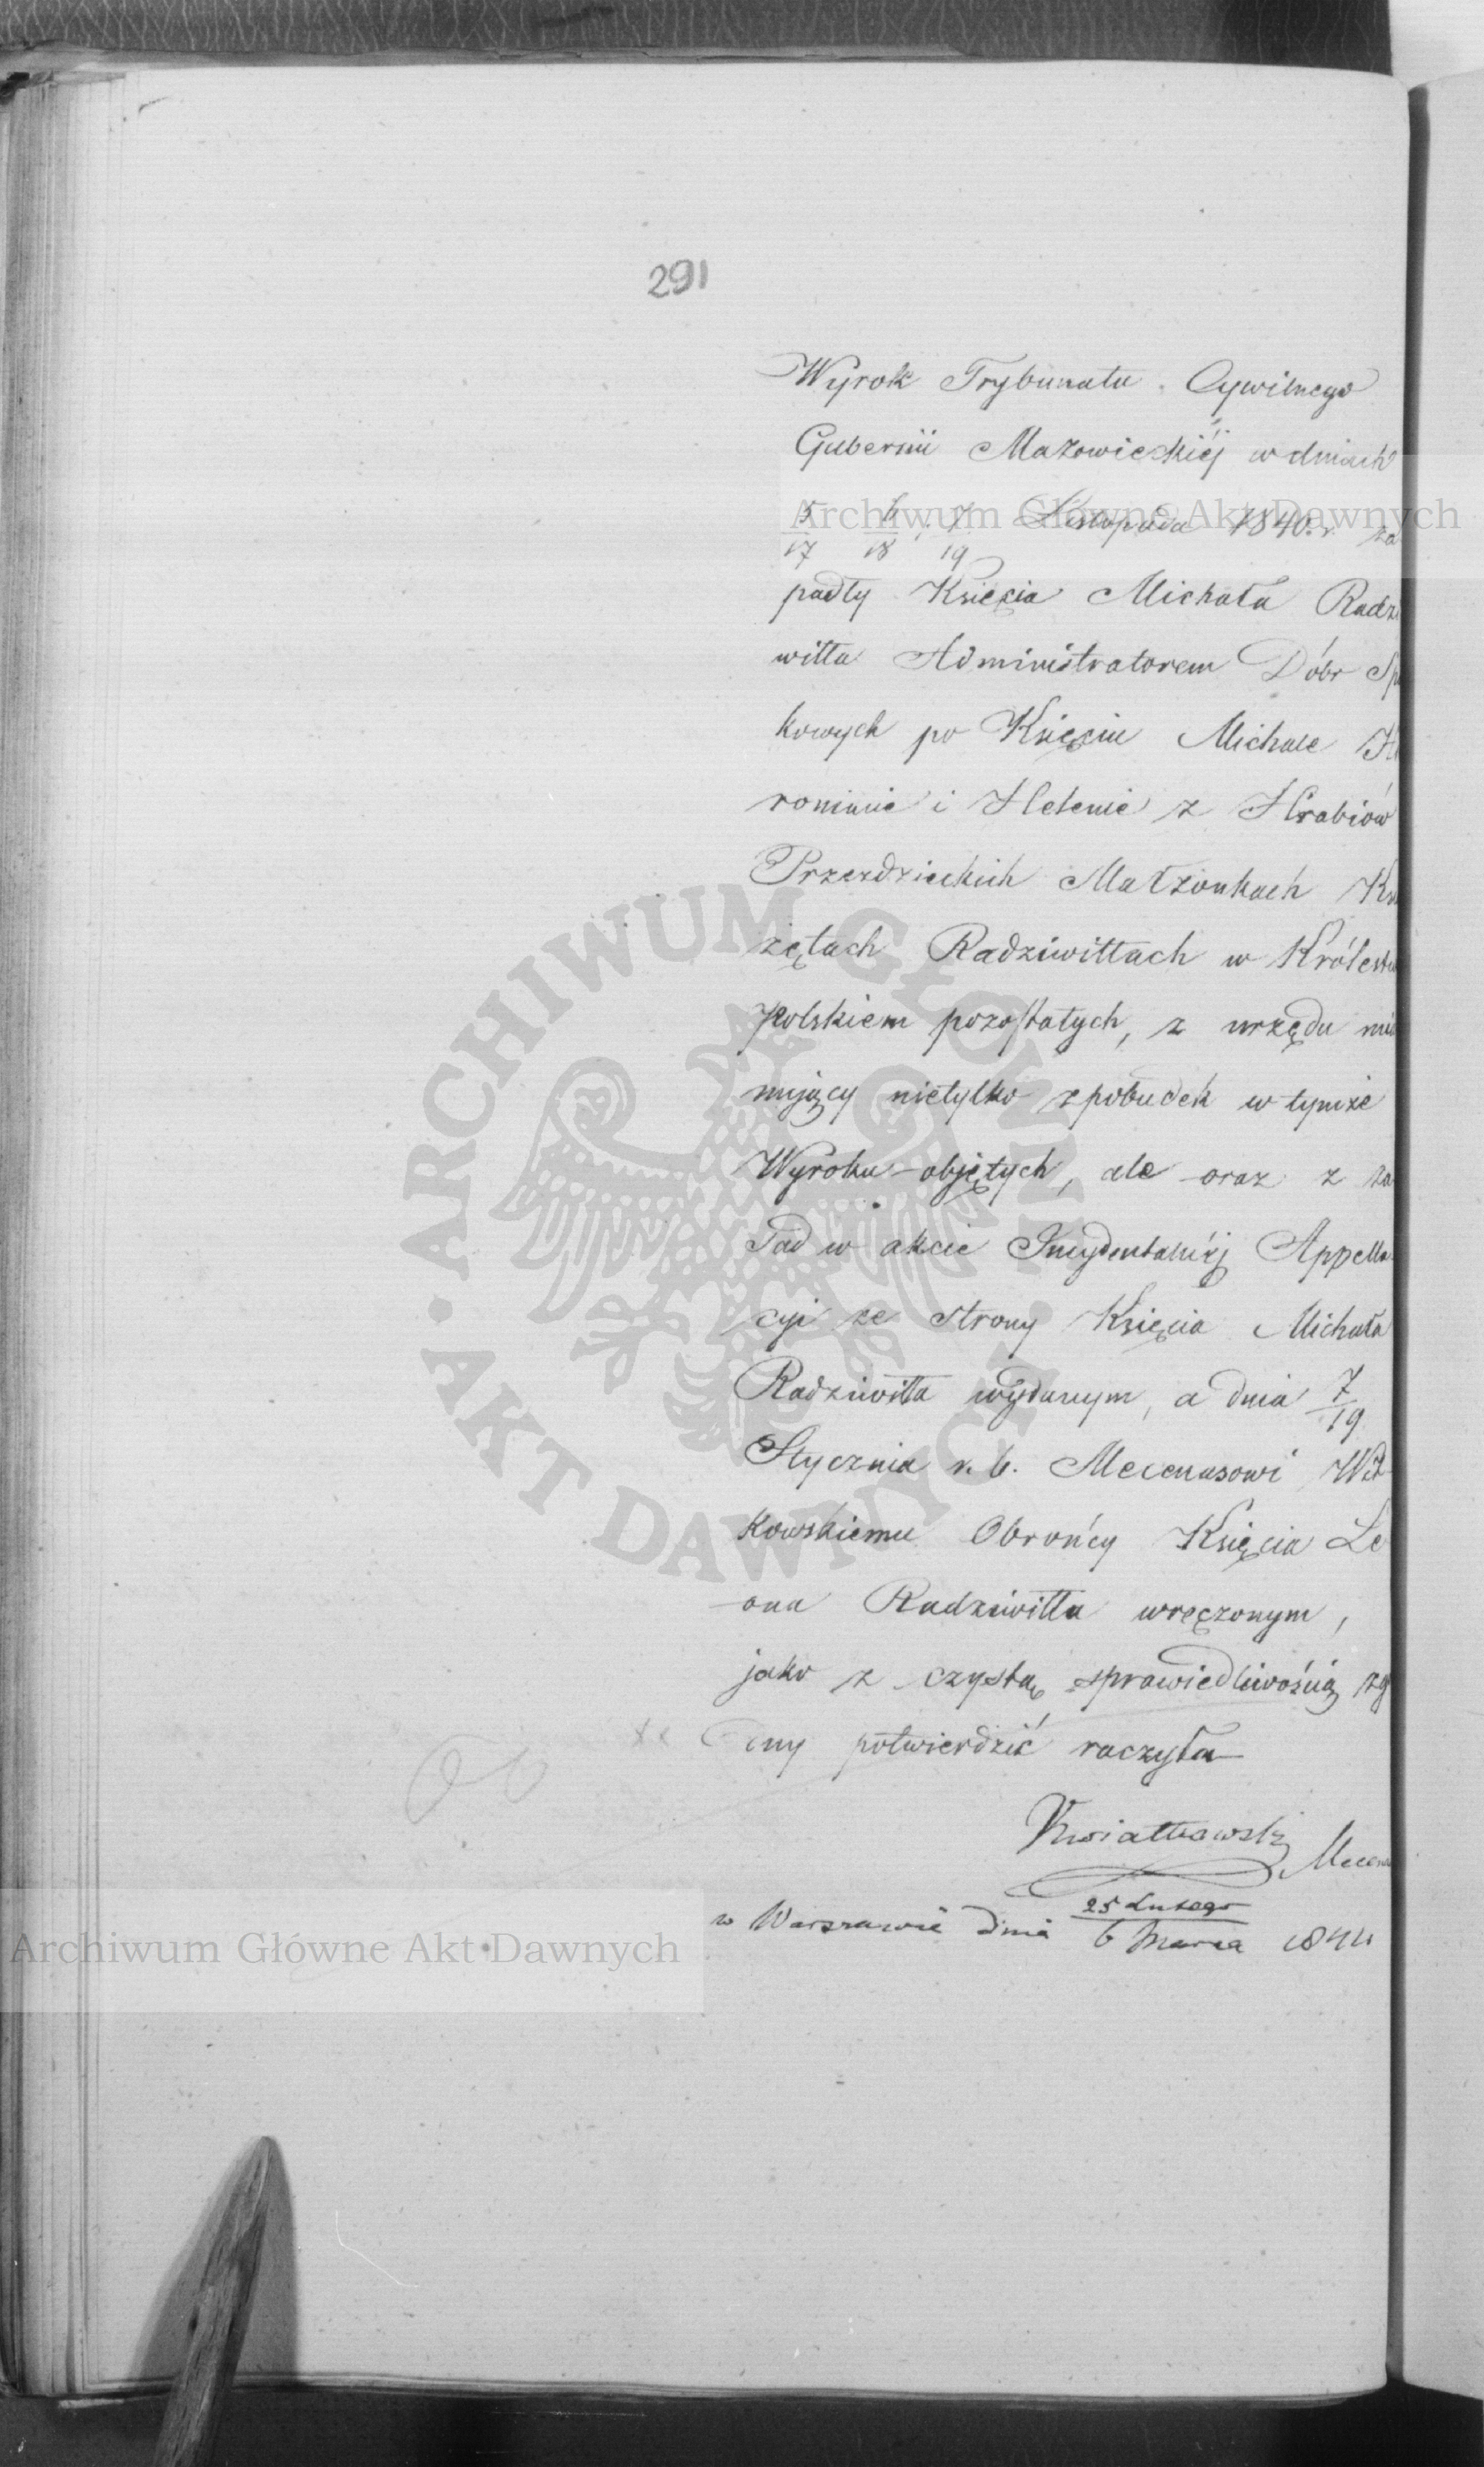 291
Wyrok Trybunału Cywilnego
Gubernii Mazowieckiéj w dniach
5/17 6/18 i 7/19 Listopada 1840. r. za
padły Księcia Michała Radzi
wiłła Administratorem Dóbr Sp
kowych po Księciu Michale H
ronimie i Helenie z Hrabiów
Przezdzieckich Małżonkach Ks
żętach Radziwiłłach w Królestw
Polskiem pozostałych, z urzędu mia
nujący nietylko z pobudek w tymże
Wyroku objętych, ale oraz z za
sad w akcie Incydentalnéj Appella
cyi ze strony Księcia Michała
Radziwiłła wydanym, a dnia 7/19
Stycznia r. b. Mecenasowi Wit
kowskiemu Obrońcy Księcia Le
ona Radziwiłła wręczonym,
jako z czystą sprawiedliwością zg
dny potwierdzić raczyła
Kwiatkowski Mecena
w Warszawie dnia 25 Lutego / 6 Marca 1841
Archiwum Główne Akt Dawnych
ARCHIWUM GŁÓWNE
AKT DAWNYCH
Archiwum Główne Akt Dawnych